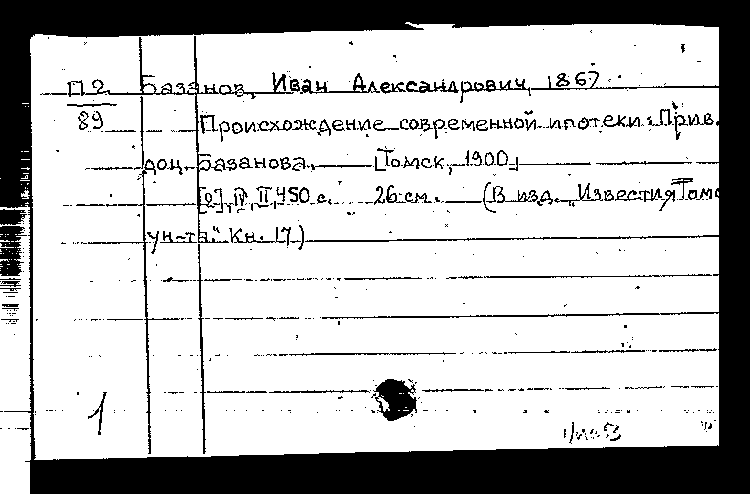 П2 Базанов, Иван Александрович, 1867
89 Происхождение современной ипотеки: Прив.
доц. Базанова. [Томск, 1900]
[2], IV, II, 450 с. 26 см. (В изд. „Известия Томс
ун-та." Кн. 17)
1